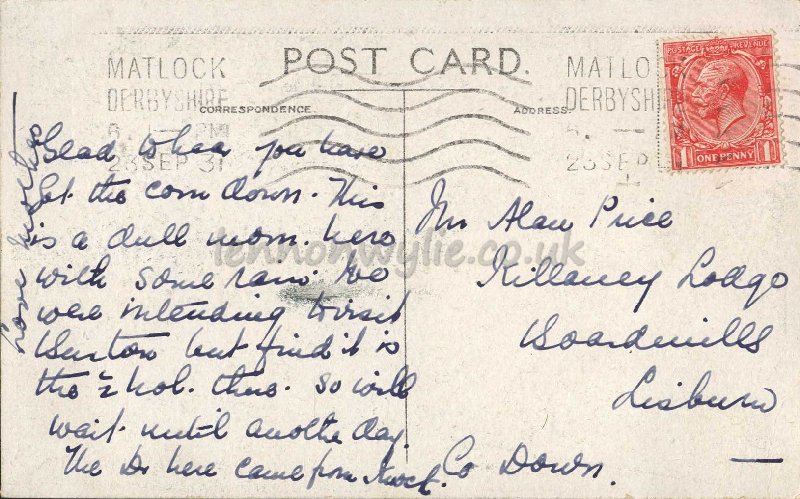 POST CARD.
MATLOCK
DERBYSHIRE
6. — PM
23 SEP 31
MATLO
DERBYSHI
6. —
23 SEP
POSTAGE REVENUE
1 ONE PENNY 1
CORRESPONDENCE.
ADDRESS.
Glad to hear you have
got the corn down. This
is a dull morn. here
with some rain. We
were intending to visit
Buxton but find it is
the ½ hol. there. So will
wait until another day.
The Dr here came from Knock.
Love
Mr Alan Price
Killaney Lodge
Boardmills
Lisburn
Co Down.
lennonwylie.co.uk